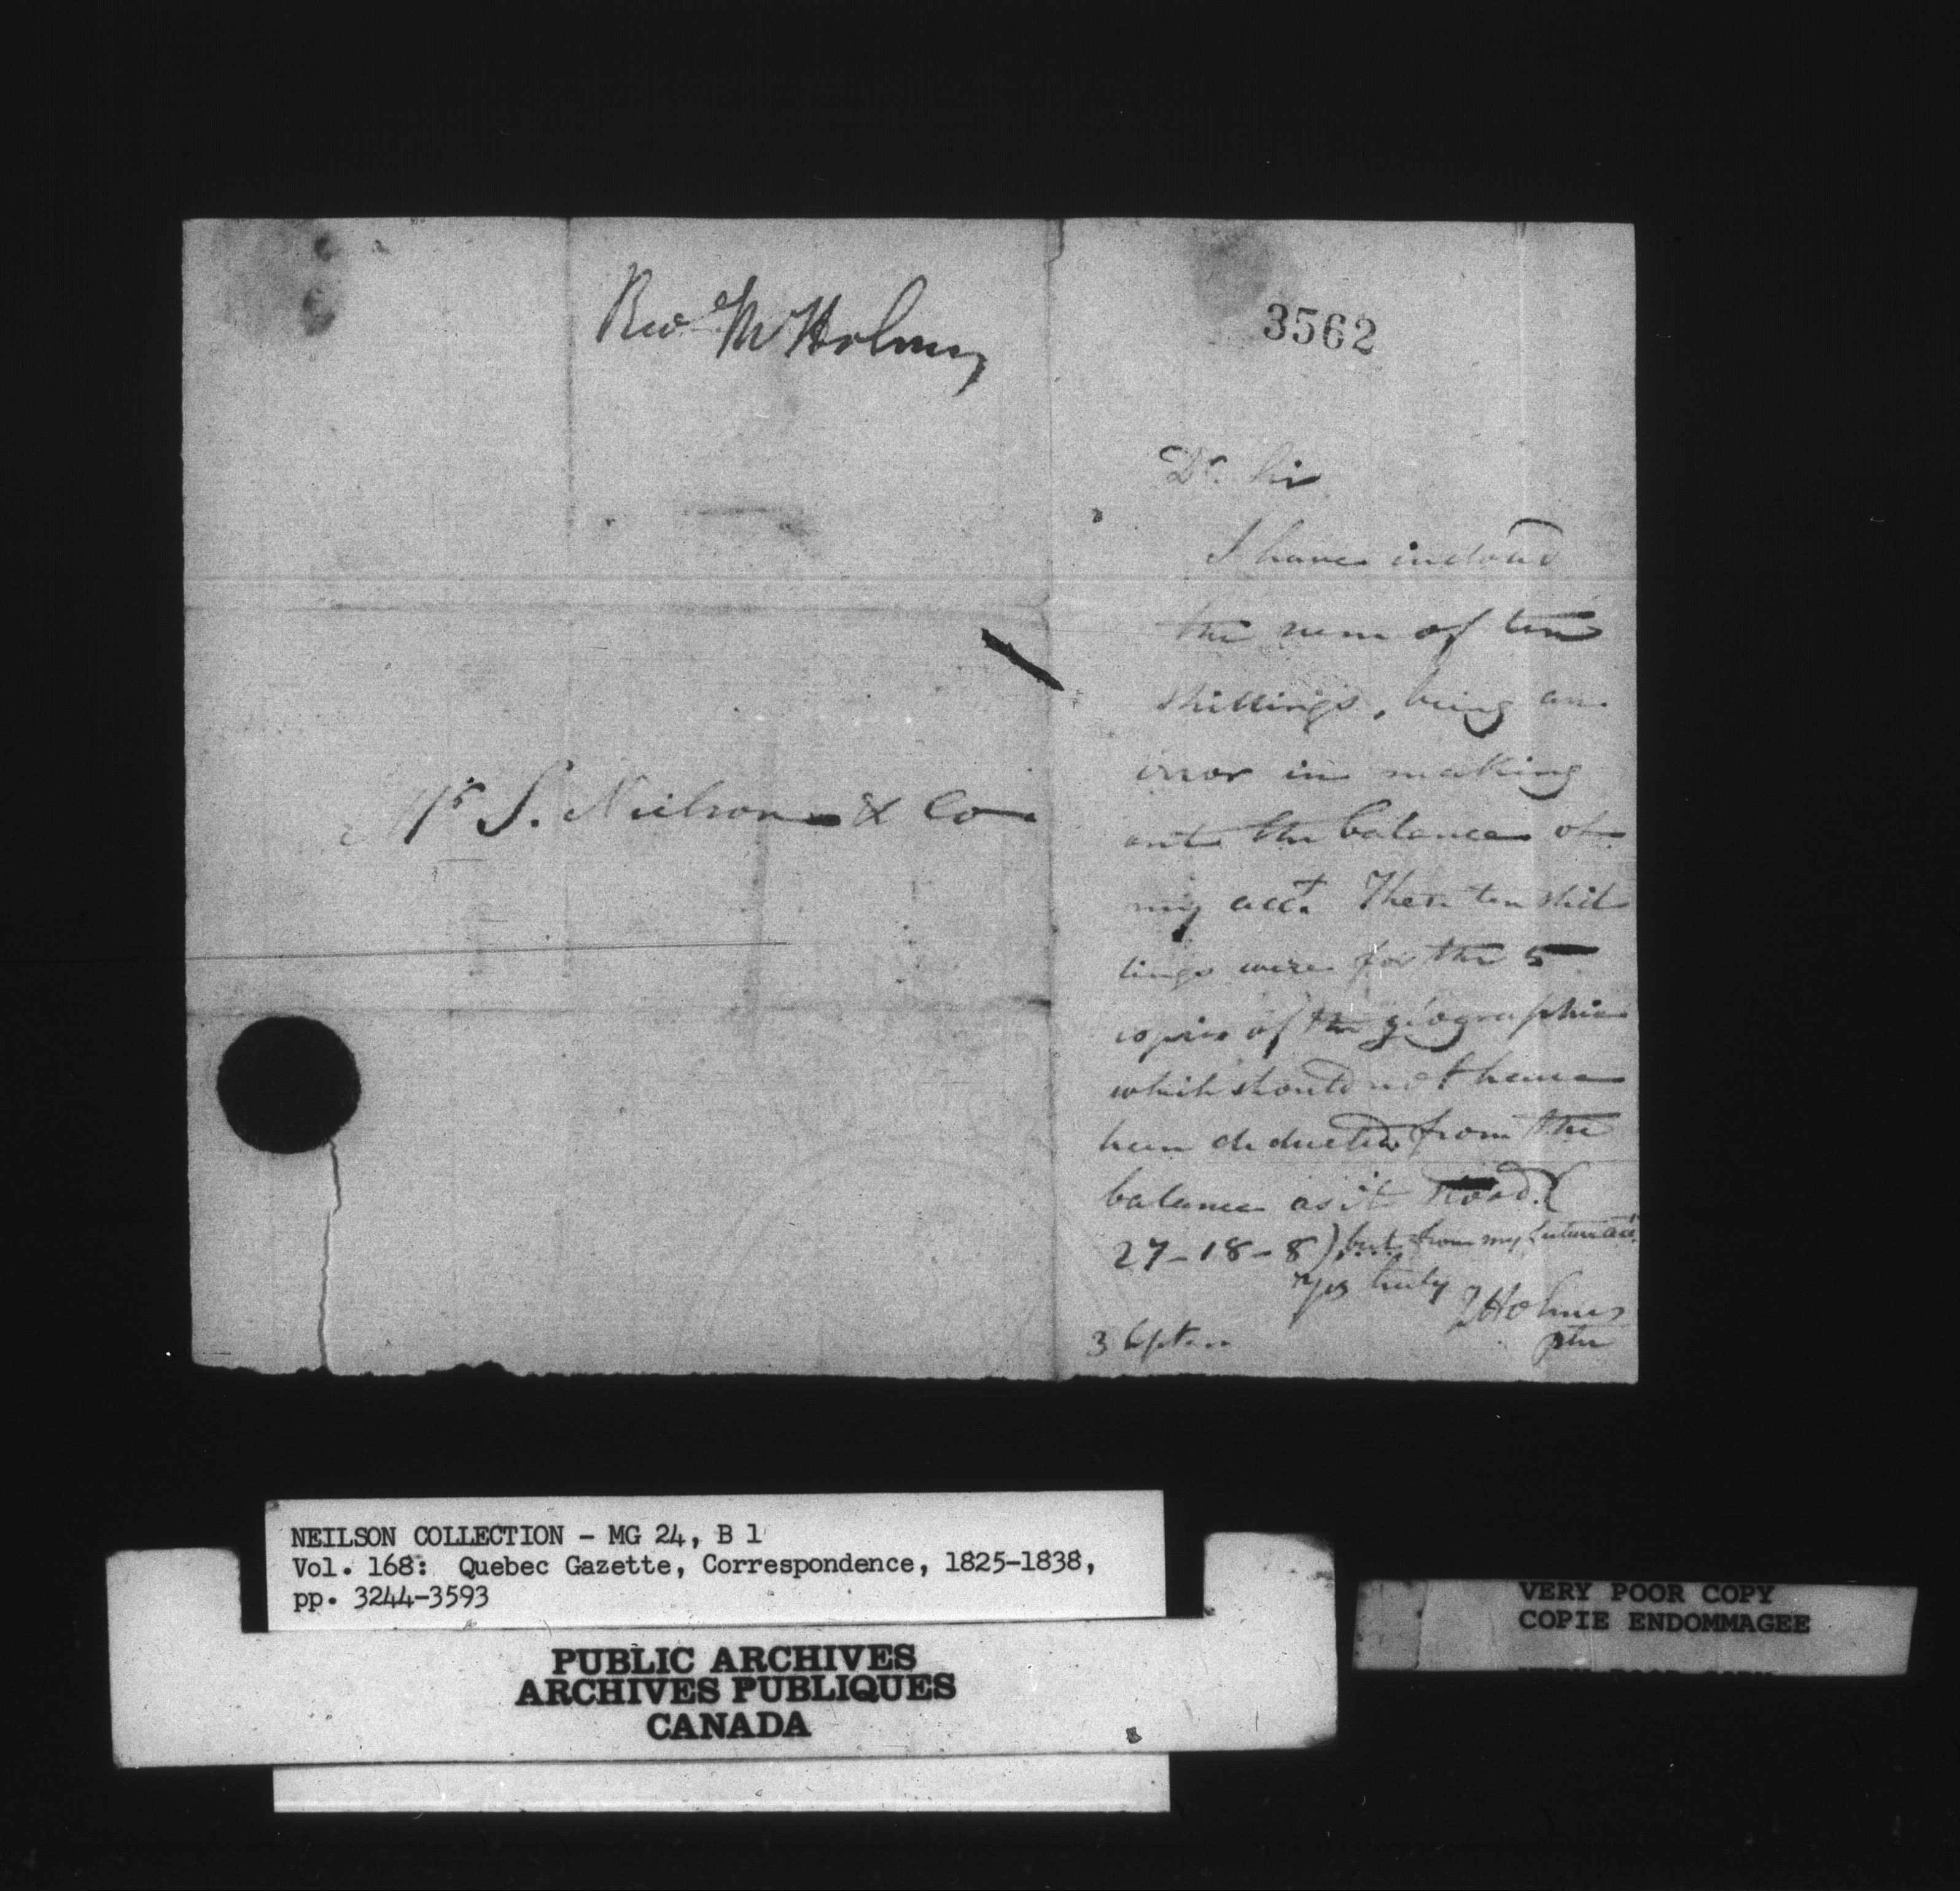 Revd Mr Holmes
Mr S. Neilson & Co
3562
Dr. Sir
I have inclosed
the sum of ten
shillings, being an
error in making
out the balance of
my acct. These ten shil
lings were for the 5
copies of the géographie
which should not have
been deducted from the
balance as it stood (
27-18-8) but from my future acct.
Yrs truly
J Holmes
ptre
3 Septem
NEILSON COLLECTION - MG 24, B 1
Vol. 168: Quebec Gazette, Correspondence, 1825-1838,
pp. 3244-3593
PUBLIC ARCHIVES
ARCHIVES PUBLIQUES
CANADA
VERY POOR COPY
COPIE ENDOMMAGEE
VERY POOR COPY